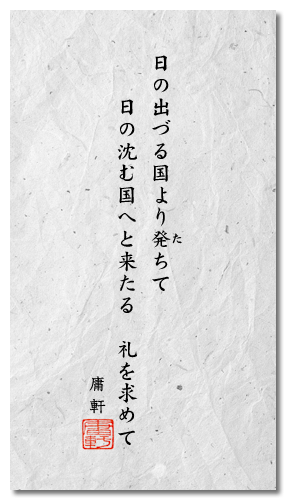 日の出づる国より発ちて
た
日の沈む国へと来たる　礼を求めて
庸軒